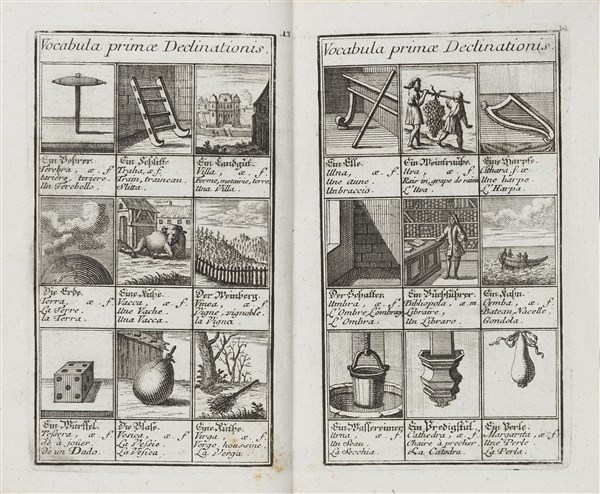 13
Vocabula primæ Declinationis.
Ein Bohrer.
Terebra, æ f.
tariere, teriere.
Un Terebello.
Ein Schlitte
Traha, æ f.
Train, traineau.
Slitta.
Ein Landgut.
Villa, æ f.
Ferme, metairie, terre
Una Villa.
Die Erde.
Terra, æ f.
La Terre.
la Terra.
Eine Kuhe.
Vacca, æ f.
Une Vache.
Una Vacca.
Der Weinberg.
Vinea, æ f.
Vigne, vignoble.
la Vigna
Ein Würffel.
Tessera, æ f.
Dé à jouer,
dé un Dado.
Die Blase.
Vesica, æ f.
La Vessie.
La Vesica.
Eine Ruthe.
Virga, æ f.
Verge, houssine.
La Verga.
14
Vocabula primæ Declinationis.
Ein Elle.
Ulna, æ f.
Une aune.
Un braccio.
Ein Weintraube.
Uva, æ f.
grape de raisin
L'Uva.
Eine Harpfe.
Cithara, f. æ
Une harpe.
L'Harpa.
Der Schatten.
Umbra, æ f.
L'Ombre, Lombrage
L'Ombra.
Ein Buchführer.
Bibliopola, æ m.
Libraire,
Un Libraro.
Ein Kahn.
Cymba, æ f.
Bateau, Nacelle.
Gondola.
Ein Wassereimer.
Urna, æ f.
Un Seau.
La Secchia.
Ein Predigstul.
Cathedra, æ f.
Chaire à precher.
La Catedra.
Ein Perle.
Margarita, æ f.
Une Perle.
La Perla.